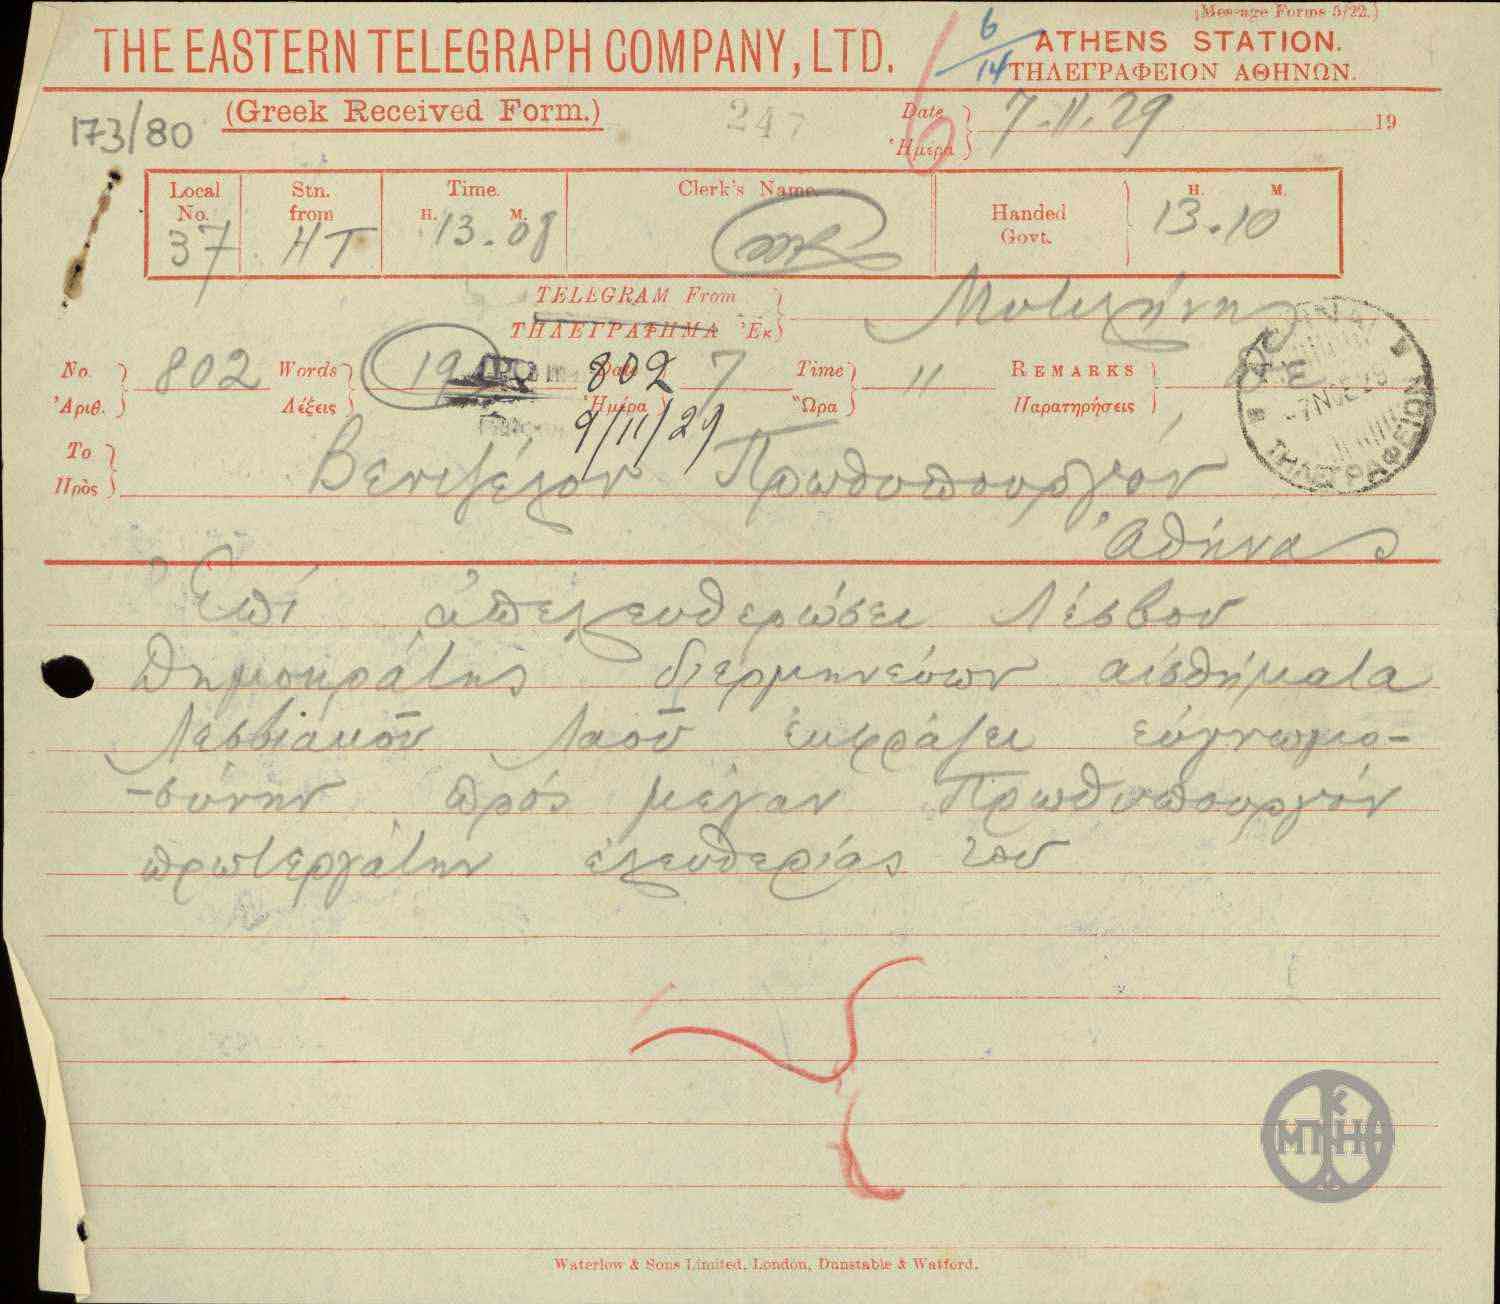 (Message Forms 5/22.)
THE EASTERN TELEGRAPH COMPANY, LTD.
6/14
ATHENS STATION.
ΤΗΛΕΓΡΑΦΕΙΟΝ ΑΘΗΝΩΝ.
173/80
(Greek Received Form.)
247
Date
Ἡμερα
7.11.29
19
Local No.
37
Stn. from
HT
Time.
H. M.
13.08
Clerk's Name.
Handed Govt.
H. M.
13.10
TELEGRAM From
ΤΗΛΕΓΡΑΦΗΜΑ Ἐκ
Μυτιλήνη
No.
Ἀριθ.
802
Words
Λέξεις
19
Date
Ἡμέρα
802
9/11/29
7
Time
Ὥρα
11
REMARKS
Παρατηρήσεις
ΑΘΗΝΑΙ
ΤΗΛΕΓΡΑΦΕΙΟΝ
To
Πρὸς
Βενιζέλον Πρωθυπουργόν
Ἀθήνας
Ἐπί ἀπελευθερώσει Λέσβου
Δημοκράτης διερμηνεύων αἰσθήματα
Λεσβιακοῦ Λαοῦ ἐκφράζει εὐγνωμο-
-σύνην πρός μέγαν Πρωθυπουργόν
πρωτεργάτην ἐλευθερίας του
ΜΠΚΗΘ
Waterlow & Sons Limited, London, Dunstable & Watford.